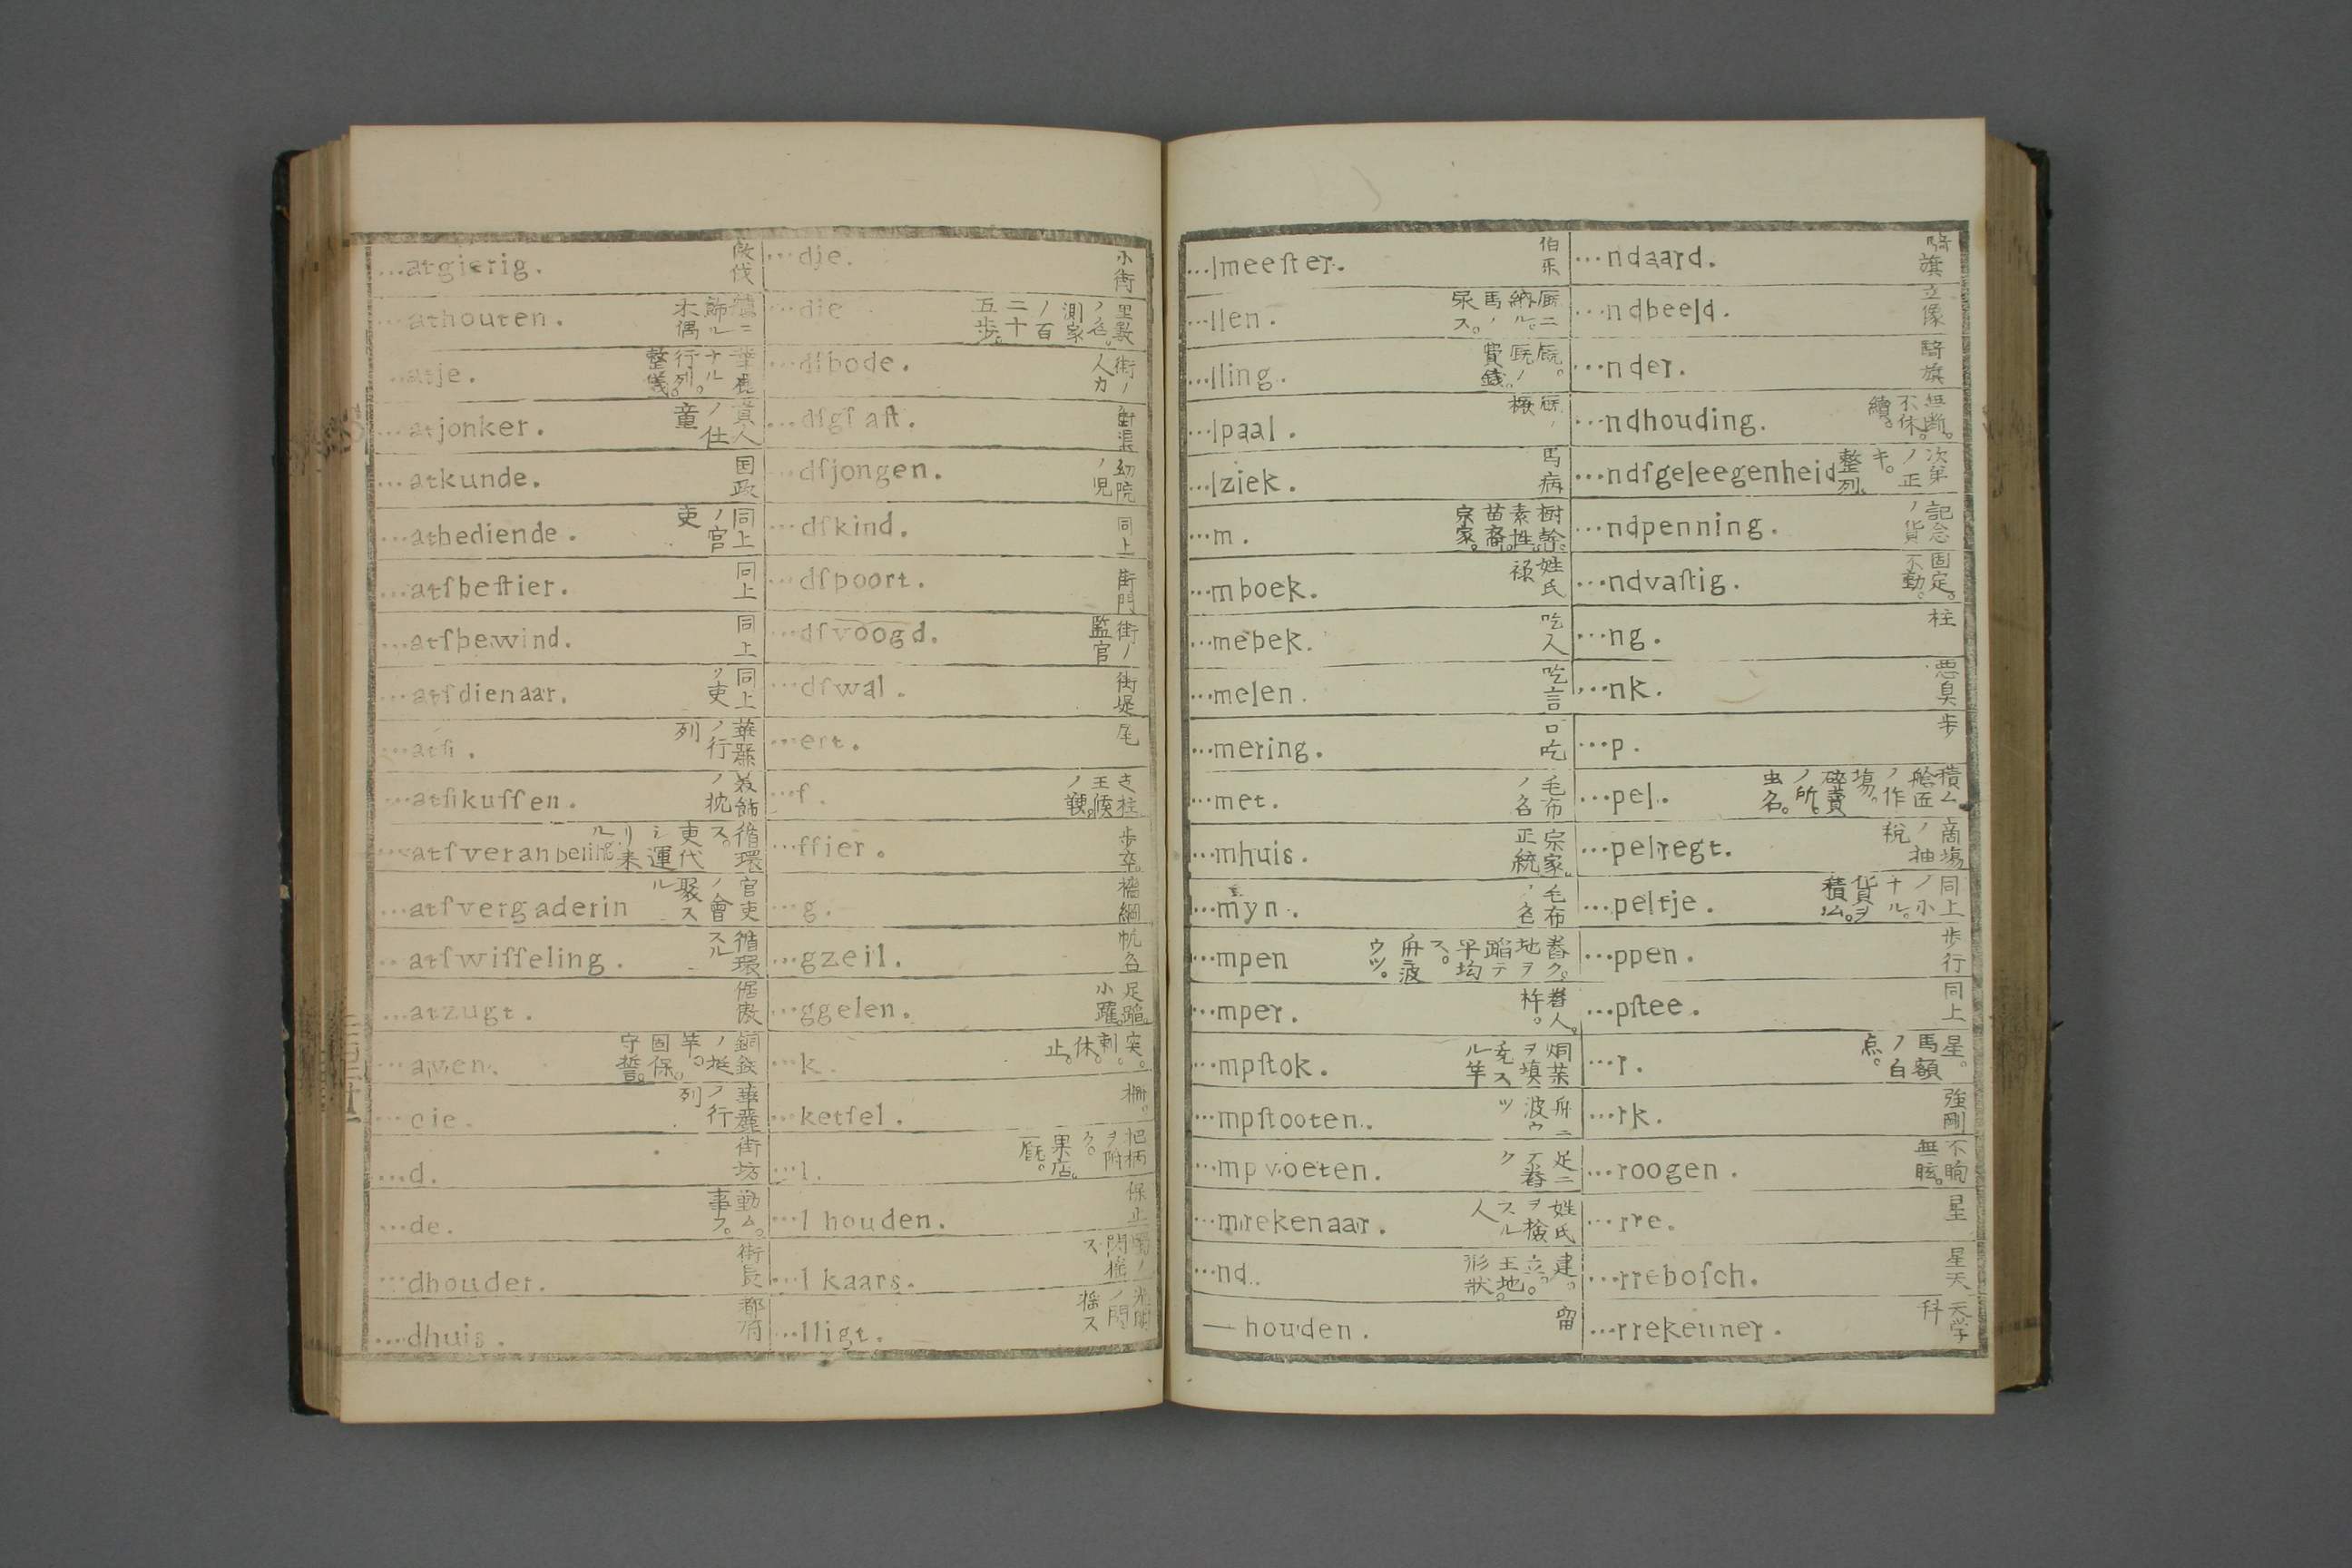 ...atgierig. 改伐
...athouten. 飾ル木偶
...atje. 行列。整儀。
...atjonker. 貢人ノ仕童
...atkunde. 国政
...atbediende. 同上ノ官吏
...atſbeſtier. 同上
...atſbewind. 同上
...atſdienaar. 同上ノ吏
...atſi. 華麗ノ行列
...atſikuſſen. 美飾ノ枕
...atſveranbeling. 循環ス。吏代シ運リ来ル
...atſvergaderin 官吏ノ會聚スル
...atſwiſſeling. 循環スル
...atzugt. 倨傲
...aven. 固保。守誓。
...cie. 華麗ノ行列
...d. 街坊
...de. 勤ム。事フ。
...dhouder. 街長
...dhuis. 都府
...dje. 小街
...die 里數ノ名。測家ノ百二十五歩。
...dſbode. 街ノ人力
...dſgſaſt. 街渠
...dſjongen. 幼院ノ児
...dſkind. 同上
...dſpoort. 街門
...dſvoogd. 街ノ監官
...dſwal. 街堤
...ert. 尾
...f.
...ffier. 歩卒。
...g. 檣綱
...gzeil. 帆名
...ggelen. 足蹈。小躍。
...k. 突。刺。休。止。
...ketſel. 柵。
...l. 把柄ヲ附ク。果店。厩。
...l houden. 保止
...l kaars. 燭ノ閃搖ス
...lligt. 光明ノ閃搖ス
...lmeeſter. 伯乐
...llen. 厩ニ納ル。馬ノ尿ス。
...lling. 厩。厩ノ費錢。
...lpaal. 厩ノ橛
...lziek. 馬病
...m. 樹幹。素性。苗裔。宗家。
...mboek. 姓氏禄
...mebek. 吃人
...melen. 吃言
...mering. 口吃
...met. 毛布ノ名
...mhuis. 宗家。正統
...myn. 毛布ノ名
...mpen 舂ク。地ヲ蹈テ平均ス。舟ニ波ウツ。
...mper. 舂人。杵。
...mpſtok. 烟茱ヲ填充スル竿
...mpſtooten. 舟ニ波ウツ
...mpvoeten. 足ニテ舂ク
...mrekenaar. 姓氏ヲ檢スル人
...nd. 建。立。王地。形狀。
— houden. 留
...ndaard. 騎旗
...ndbeeld. 立像
...nder. 騎旗
...ndhouding. 無断。不休。續。
...ndſgeleegenheid 次第ノ正キ。整列
...ndpenning. 記念ノ貨
...ndvaſtig. 固定。不動。
...ng. 柱
...nk. 悪臭
...p. 歩
...pel. 積ム。舩匠ノ作場。碎賣ノ所。虫名。
...pelregt. 商場ノ抽税
...peltje. 同上ノ小ナル。貨ヲ積ム。
...ppen. 歩行
...pſtee. 同上
...r. 星。馬額ノ白点。
...rk. 強剛
...roogen. 不眴無眩。
...rre. 星
...rreboſch. 星天
...rrekenner. 天学科